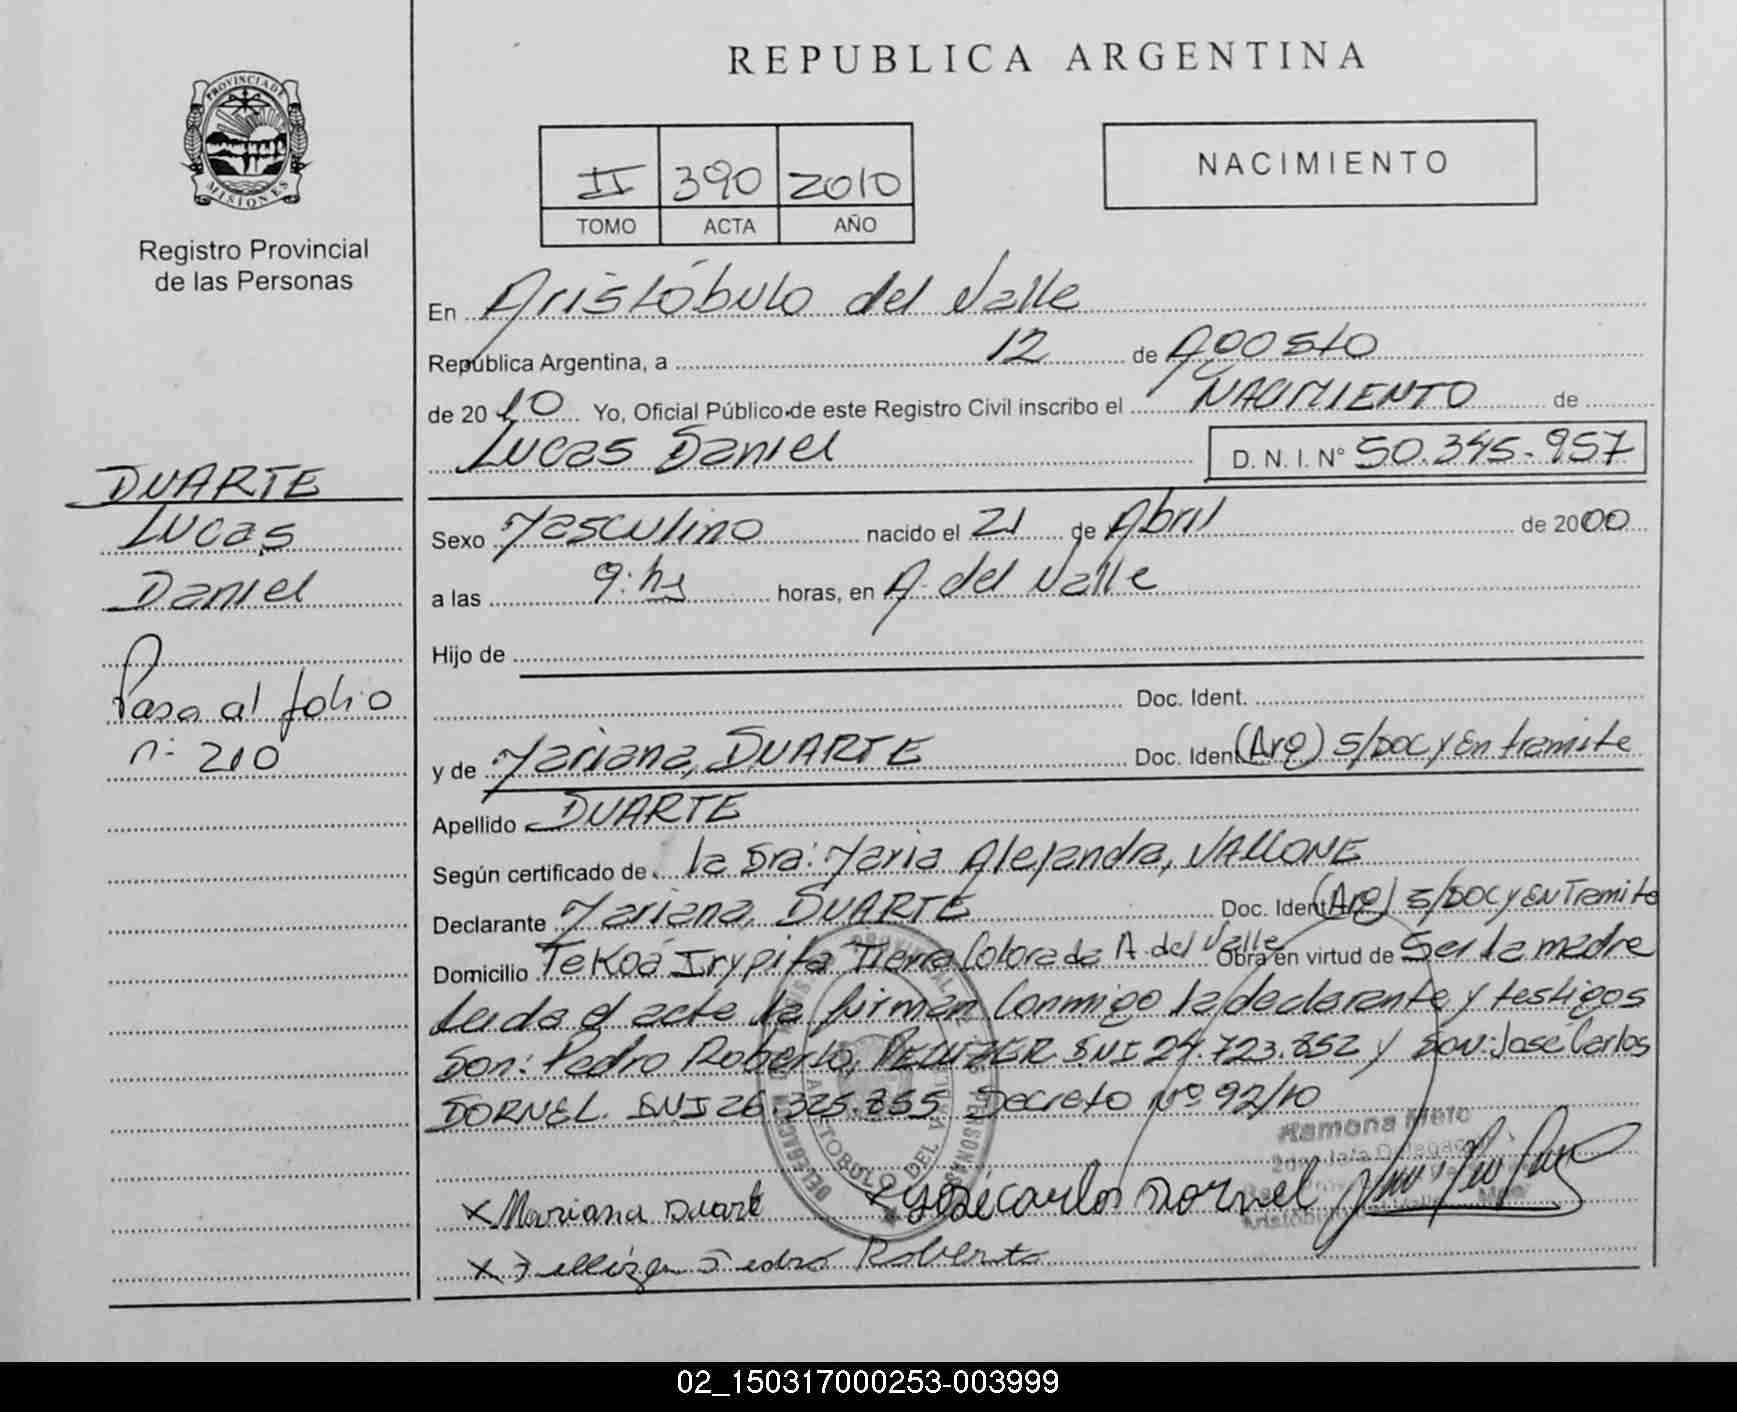 REPUBLICA ARGENTINA
PROVINCIA DE
MISIONES
Registro Provincial
de las Personas
II 390 2010
TOMO ACTA AÑO
NACIMIENTO
En Aristóbulo del Valle
República Argentina, a 12 de Agosto
de 2010 Yo, Oficial Público de este Registro Civil inscribo el NACIMIENTO de
Lucas Daniel D. N. I. N° 50.345.957
DUARTE
Lucas
Daniel
Pasa al folio
n: 210
Sexo Masculino nacido el 21 de Abril de 2000
a las 9: hs horas, en A. del Valle
Hijo de
Doc. Ident.
y de Mariana, DUARTE Doc. Ident (Arg) s/DOC y En tramite
Apellido DUARTE
Según certificado de la Sra: Maria Alejandra, VALLONE
Declarante Mariana, DUARTE Doc. Ident (Arg) s/DOC y En Tramite
Domicilio Tekoá Irypita Tierra Colorada A. del Valle Obra en virtud de Ser la madre
Leida el acta la firman Conmigo la declarante y testigos
Son: Pedro Roberto, PELLIZER DNI 24.723.852 y Don: José Carlos
DORNEL. DNI 26.325.855 Decreto Nº 92/10
Ramona Melo
x Mariana Duarte x José carlos Dornel
x Pellizer Pedro Roberto
02_150317000253-003999